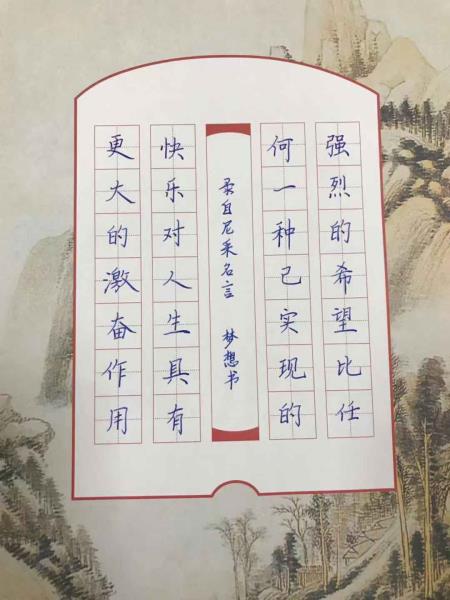 强烈的希望比任
何一种已实现的
录自尼采名言 梦想书
快乐对人生具有
更大的激奋作用